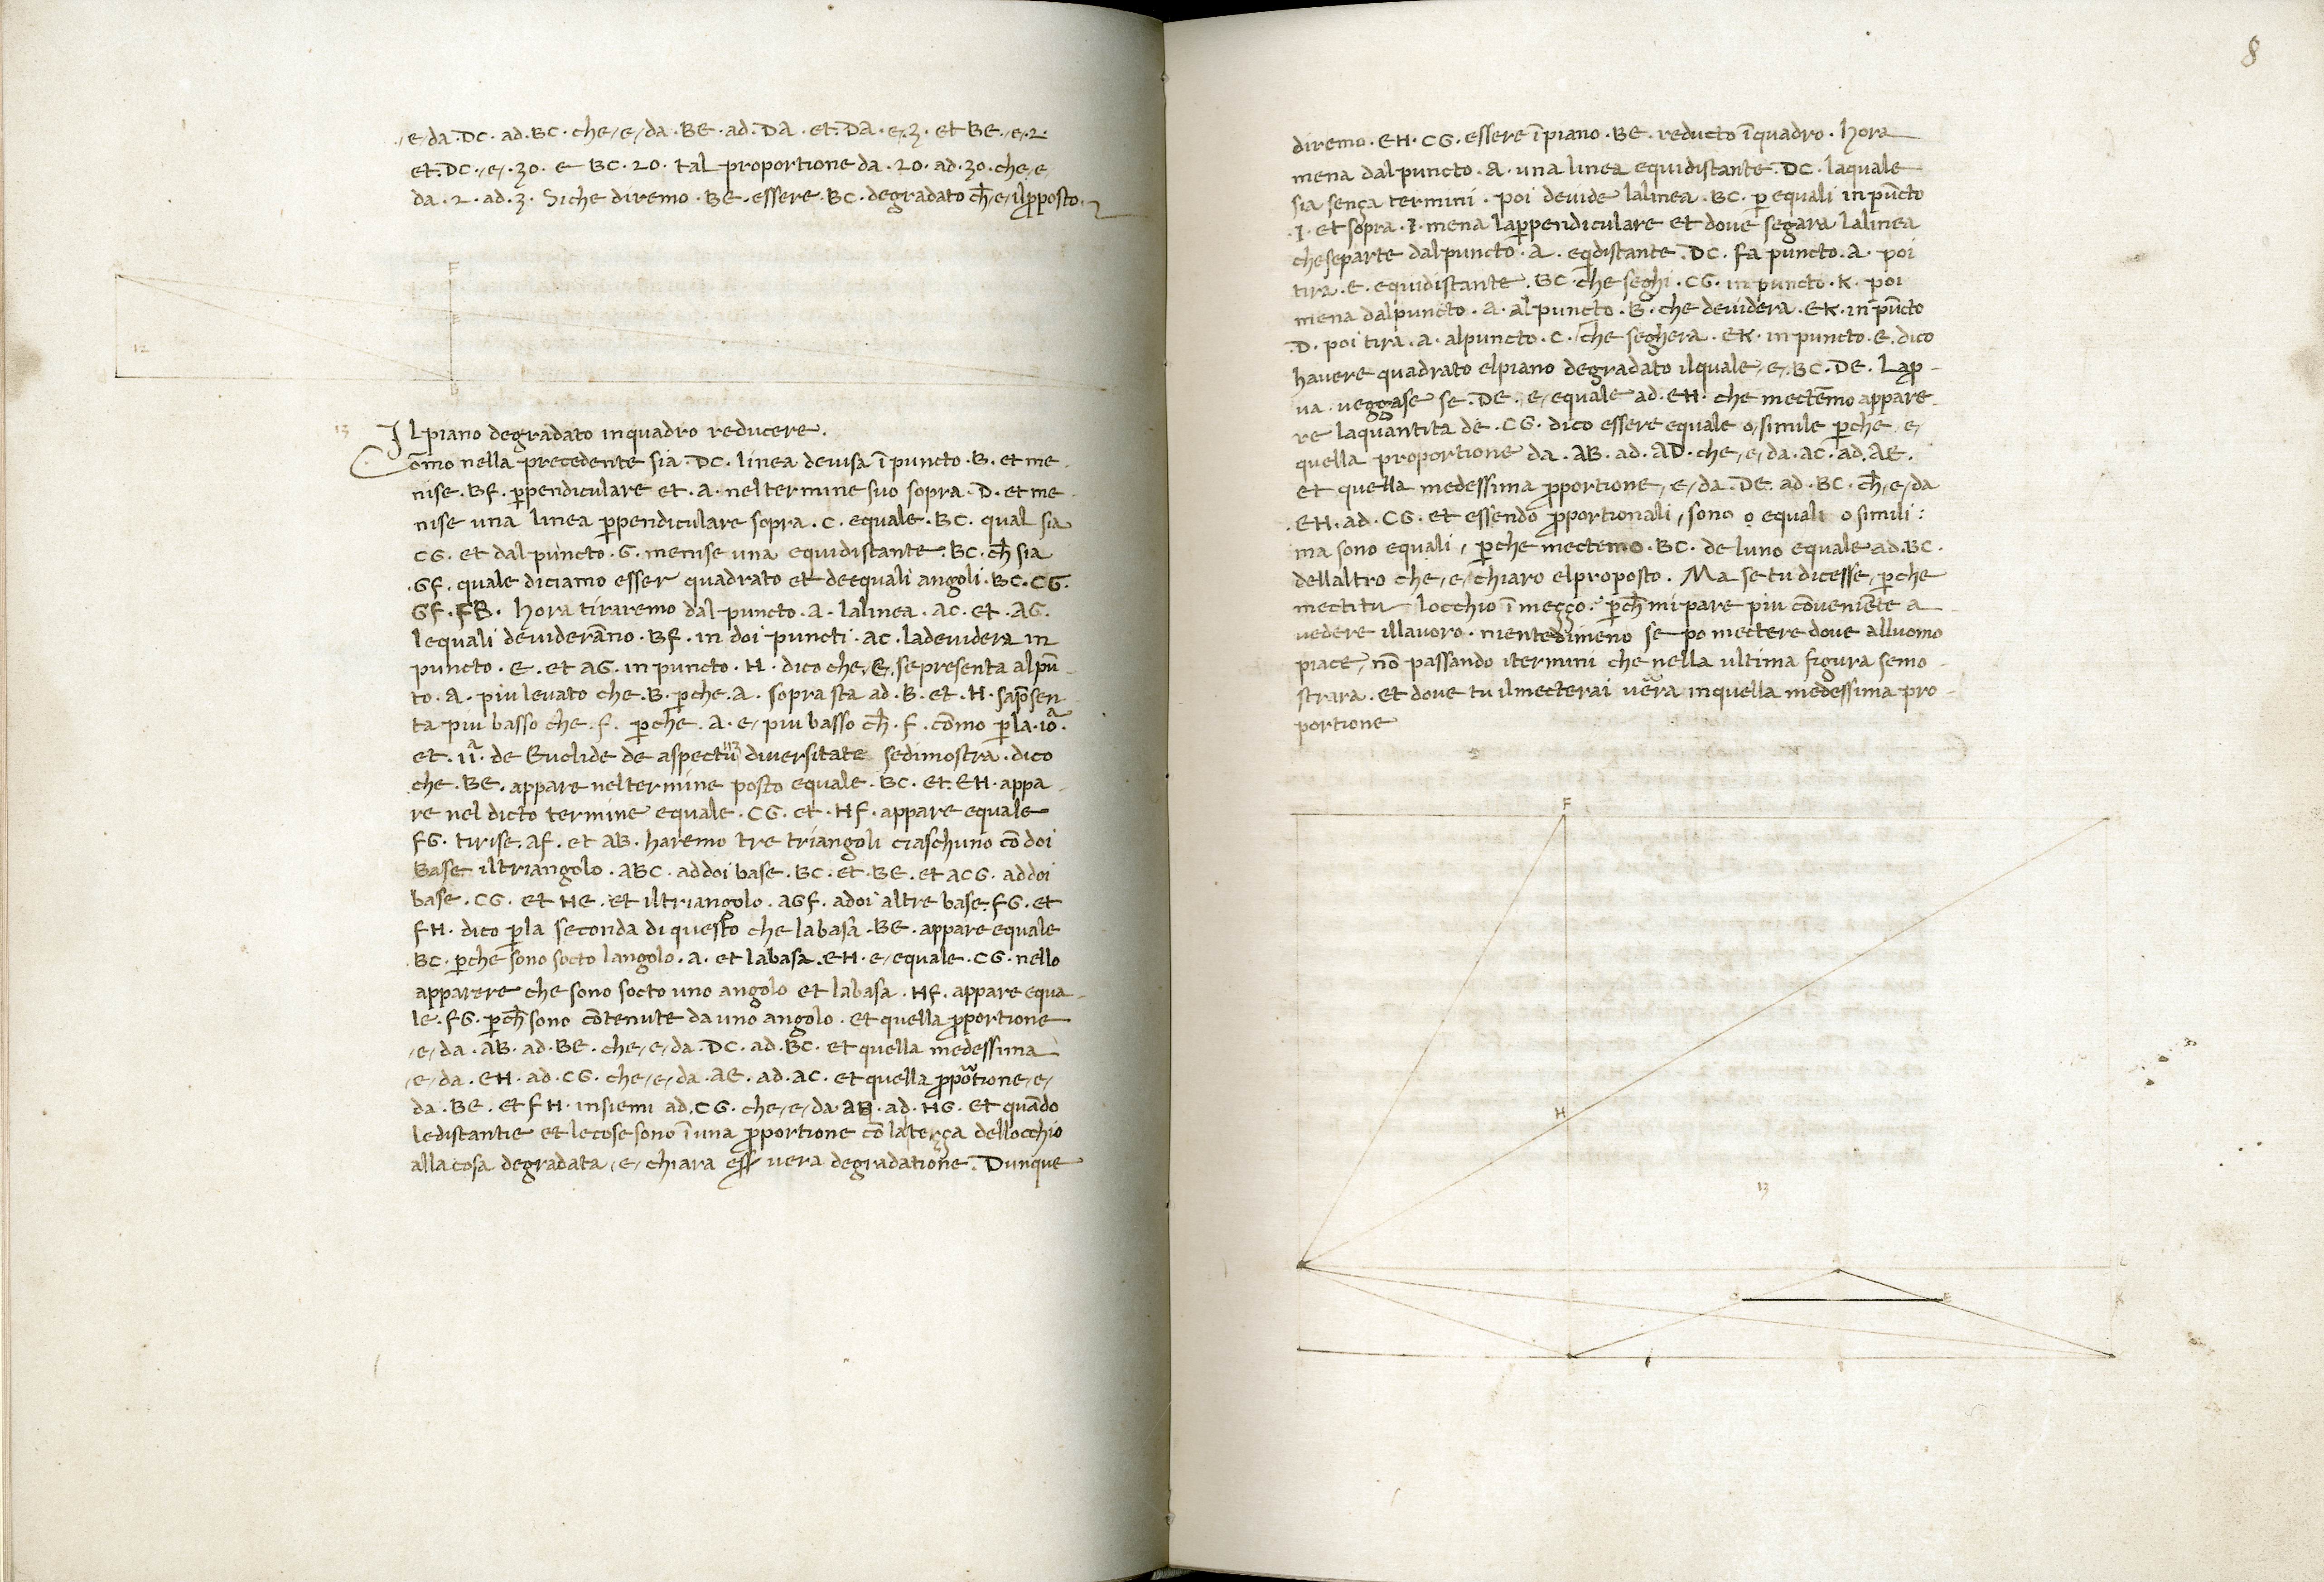 ·/e/ da ·DC· ad ·BC· che /e/ da ·BE· ad ·DA· et ·DA· e· 3· et BE· /e· 2·
et ·DC· /e/ ·30· e BC· 20· tal proportione da ·20· ad ·30· che /e
da ·2· ad ·3· Siche diremo ·BE· essere ·BC· degradato ch̄ /e/ il ꝓposto·
F
E
12
B
13 Il piano degradato in quadro reducere·
Cōmo nella precedente sia ·DC· linea devisa ī puncto ·B· et me-
nise ·BF· ꝑpendiculare et ·A· nel termine suo sopra ·D· et me-
nise una linea ꝑpendiculare sopra ·C· equale ·BC· qual sia
CG· et dal puncto ·G· menise una equidistante ·BC· ch̄ sia
·GF· quale diciamo esser quadrato et de equali angoli ·BC·CG·
GF·FB· hora tiraremo dal puncto ·A· la linea ·AC· et ·AG·
lequali deviderāno ·BF· in doi puncti ·AC· ladevidera in
puncto ·E· et AG· in puncto ·H· dico che ·E· sepresenta al pū-
to ·A· piu levato che ·B· ꝑche ·A· sopra sta ad ·B· et ·H· sapͣsen-
ta piu basso che ·f· ꝑche ·A· e/ piu basso ch̄ ·f· cōmo ꝑla ·10ª·
et ·11ª· de Euclide de aspectuū diversitate sedimostra· dico
che ·BE· appare nel termine posto equale ·BC· et ·EH· appa-
re nel dicto termine equale ·CG· et ·Hf· appare equale
fG· tirise ·Af· et AB· haremo tre triangoli ciaschuno cō doi
Base il triangolo ·ABC· ad doi base ·BC· et ·BE· et ACG· ad doi
base ·CG· et HE· et il triangolo ·AGf· a doi altre base ·fG· et
fH· dico ꝑla seconda di questo che la basa ·BE· appare equale
BC· ꝑche sono socto langolo ·A· et la basa ·EH· e/ equale ·CG· nello
apparere che sono socto uno angolo et la basa ·Hf· appare equa-
le ·fG· ꝑch̄ sono cōtenute da uno angolo· et quella ꝓportione
/e/ da ·AB· ad ·BE· che /e/ da ·DC· ad ·BC· et quella medessima
/e/ da ·EH· ad ·CG· che /e/ da ·AE· ad ·AC· et quella ꝓpotione /e/
da ·BE· et fH· insiemi ad ·CG· che /e/ da AB· ad ·HG· et quādo
le distantie et le cose sono ī una ꝓportione cō la terça dellocchio
alla cosa degradata /e/ chiara eſſ vera degradatione· Dunque
8
diremo ·EH· CG· essere ī piano ·BE· reducto ī quadro· hora
mena dal puncto ·A· una linea equidistante ·DC· laquale
sia sença termini· poi devide la linea ·BC· ꝑ equali in pūcto
·I· et sopra ·I· mena la ꝑpendiculare et dove segara la linea
che separte dal puncto ·A· eqdistante ·DC· fa puncto ·A· poi
tira ·E· equidistante ·BC· che seghi ·CG· in puncto ·K· poi
mena dal puncto ·A· al puncto ·B· che devidera ·EK· in pūcto
·D· poi tira ·A· al puncto ·C· che seghera ·EK· in puncto ·E· dico
havere quadrato el piano degradato ilquale /e/ ·BC·DE· La ꝓ-
va· veggase se ·DE· /e/ equale ad ·EH· che mectēmo appare-
re la quantita de ·CG· dico essere equale o/ simile ꝑche /e/
quella proportione da ·AB· ad ·AD· che /e/ da ·AC· ad ·AE·
et quella medessima ꝓportione /e/ da ·DE· ad ·BC· ch̄ /e/ da
·EH· ad ·CG· et essendo ꝓportionali /sono o equali o simili:
ma sono equali / ꝑche mectemo ·BC· de luno equale ad ·BC·
dellaltro che /e/ chiaro el proposto· Ma se tu dicesse /ꝑche
mectitu locchio ī meçço: ꝑch̄ mi pare piu cōveniēte a
vedere il lavoro· nientedimeno se po mectere dove alluomo
piace /nō passando i termini che nella ultima figura semo-
strara· et dove tu il mecterai vera in quella medessima pro-
portione
F
H
13
A
E
K